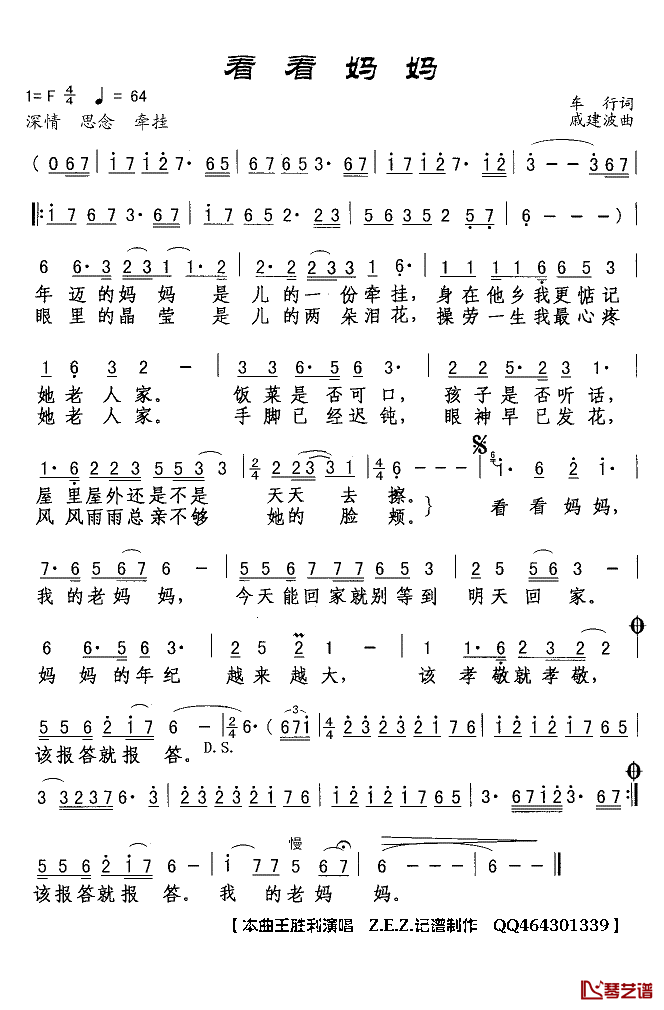 看看妈妈
1=F 4/4 ♩=64
车行词
深情 思念 牵挂
戚建波曲
(067 i7i27· 65 67653· 27· i2 3-- 367
‖: i7673· 67 i7652· 23 56352 57 6---)
6 6·3 231 1·2 2·2 233 1 6· 1 1 1 6 6 5 3
年迈的妈妈 是儿的一份牵挂，身在他乡我更惦记
眼里的晶莹 是儿的两朵泪花，操劳一生我最心疼
1 6 3 2 - 3 3·6 56 3· 225 5·2 23 1·
她老人家。 饭菜是否可口， 孩子是否听话，
她老人家。 手脚已经迟钝， 眼神早已发花，
1·6 223 553 3 2/4 2 233 31 4/4 6--- i· 6 2 i·
屋里屋外还是不是 天天去擦。
风风雨雨总亲不够 她的脸颊。} 看看妈妈，
7·6 567 6 - 556 777 653 25 556 3 -
我的老妈妈， 今天能回家就别等到 明天回家。
6 6·5 63· 2 5 2 1 - 1 1·6 23 22
妈妈的年纪 越来越大， 该孝敬就孝敬，
556 2i7 6 - 2/4 6·(67i 4/4 2323 2i76 i2i2 i765
该报答就报答。 D.S.
3 32376·3 2322 376 i2i2 i765 3·67i23· 67:‖
慢
556 2i7 6 - i 77 5 67 6---‖
该报答就报答。我的老妈妈。
【本曲王胜利演唱 Z.E.Z.记谱制作 QQ464301339】
琴艺谱